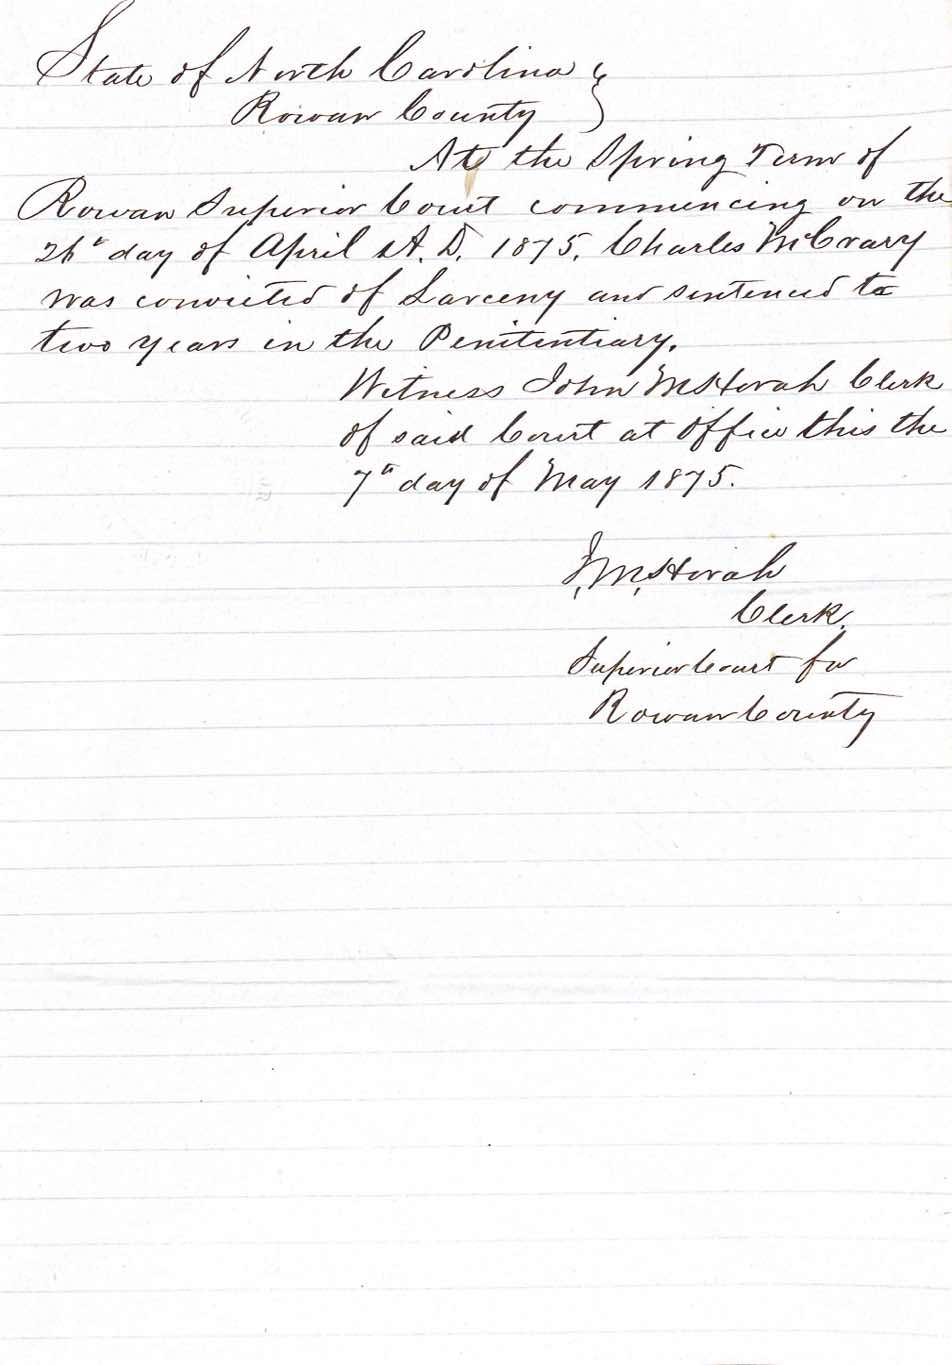 State of North Carolina }
Rowan County }
At the Spring Term of
Rowan Superior Court commencing on the
26th day of April A.D. 1875, Charles McCrary
was convicted of Larceny and sentenced to
two years in the Penitentiary.
Witness John M Horah Clerk
of said Court at office this the
7th day of May 1875.
J. M. Horah
Clerk.
Superior Court for
Rowan County